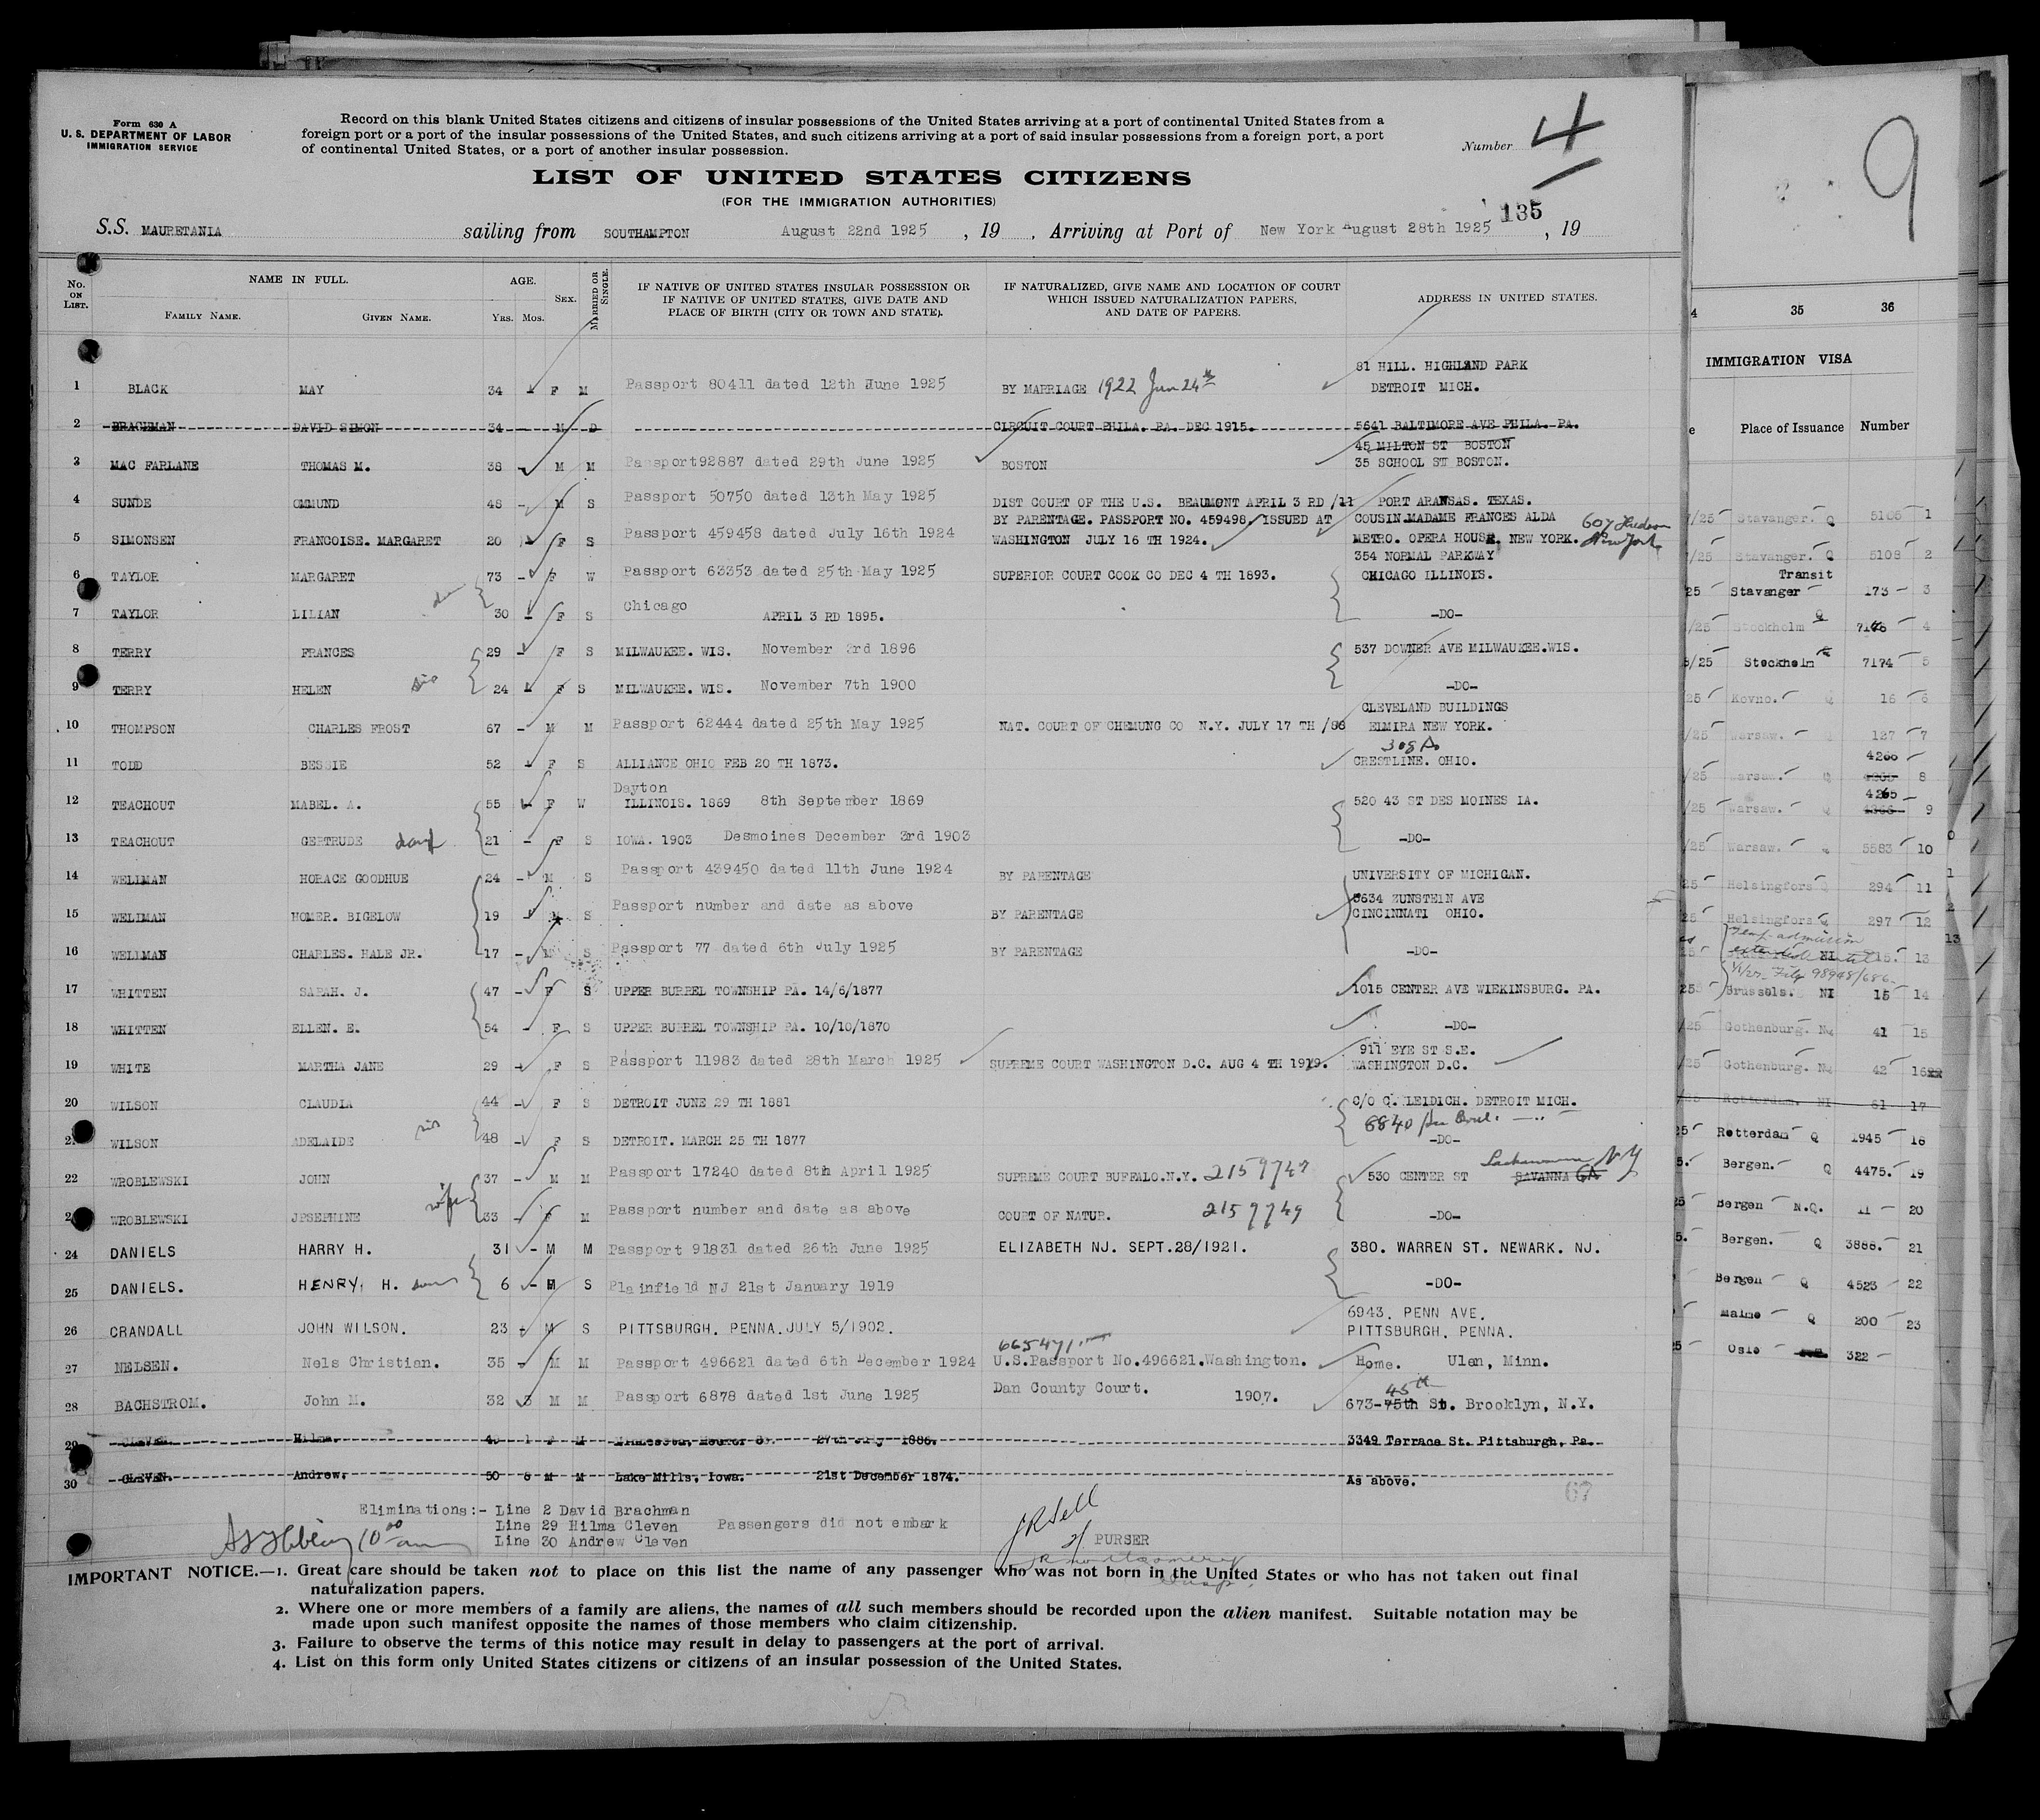 Form 630 A
U. S. DEPARTMENT OF LABOR
IMMIGRATION SERVICE
Record on this blank United States citizens and citizens of insular possessions of the United States arriving at a port of continental United States from a
foreign port or a port of the insular possessions of the United States, and such citizens arriving at a port of said insular possessions from a foreign port, a port
of continental United States, or a port of another insular possession.
Number 4
LIST OF UNITED STATES CITIZENS
(FOR THE IMMIGRATION AUTHORITIES)
135
S.S. MAURETANIA sailing from SOUTHAMPTON August 22nd 1925 , 19 , Arriving at Port of New York August 28th 1925 , 19
No. ON LIST.
NAME IN FULL.
FAMILY NAME. GIVEN NAME.
AGE.
YRS. MOS.
SEX.
MARRIED OR SINGLE.
IF NATIVE OF UNITED STATES INSULAR POSSESSION OR
IF NATIVE OF UNITED STATES, GIVE DATE AND
PLACE OF BIRTH (CITY OR TOWN AND STATE).
IF NATURALIZED, GIVE NAME AND LOCATION OF COURT
WHICH ISSUED NATURALIZATION PAPERS,
AND DATE OF PAPERS.
ADDRESS IN UNITED STATES.
81 HILL. HIGHLAND PARK
1 BLACK MAY 34 - F M Passport 80411 dated 12th June 1925 BY MARRIAGE 1922 Jun 24th DETROIT MICH.
2 BRACHMAN DAVID SIMON 34 - M D CIRCUIT COURT PHILA. PA. DEC 1915. 5641 BALTIMORE AVE PHILA. PA.
45 MILTON ST BOSTON
3 MAC FARLANE THOMAS M. 38 - M M Passport92887 dated 29th June 1925 BOSTON 35 SCHOOL ST BOSTON.
4 SUNDE OMMUND 48 - M S Passport 50750 dated 13th May 1925 DIST COURT OF THE U.S. BEAUMONT APRIL 3 RD /11 PORT ARANSAS. TEXAS.
BY PARENTAGE. PASSPORT NO. 459498. ISSUED AT COUSIN.MADAME FRANCES ALDA 607 Hudson
5 SIMONSEN FRANCOISE. MARGARET 20 - F S Passport 459458 dated July 16th 1924 WASHINGTON JULY 16 TH 1924. METRO. OPERA HOUSE. NEW YORK. New York
354 NORMAL PARKWAY
6 TAYLOR MARGARET 73 - F W Passport 63353 dated 25th May 1925 SUPERIOR COURT COOK CO DEC 4 TH 1893. CHICAGO ILLINOIS.
7 TAYLOR LILIAN 30 - F S Chicago APRIL 3 RD 1895. -DO-
8 TERRY FRANCES 29 - F S MILWAUKEE. WIS. November 3rd 1896 537 DOWNER AVE MILWAUKEE.WIS.
9 TERRY HELEN sis 24 - F S MILWAUKEE. WIS. November 7th 1900 -DO-
CLEVELAND BUILDINGS
10 THOMPSON CHARLES FROST 67 - M M Passport 62444 dated 25th May 1925 NAT. COURT OF CHEMUNG CO N.Y. JULY 17 TH /86 ELMIRA NEW YORK.
11 TODD BESSIE 52 - F S ALLIANCE OHIO FEB 20 TH 1873. CRESTLINE. OHIO.
Dayton
12 TEACHOUT MABEL. A. 55 - F W ILLINOIS. 1869 8th September 1869 520 43 ST DES MOINES IA.
13 TEACHOUT GERTRUDE dau 21 - F S IOWA. 1903 Desmoines December 3rd 1903 -DO-
14 WELLMAN HORACE GOODHUE 24 - M S Passport 439450 dated 11th June 1924 BY PARENTAGE UNIVERSITY OF MICHIGAN.
3634 ZUNSTEIN AVE
15 WELLMAN HOMER. BIGELOW 19 M S Passport number and date as above BY PARENTAGE CINCINNATI OHIO.
16 WELLMAN CHARLES. HALE JR. 17 - M S Passport 77 dated 6th July 1925 BY PARENTAGE -DO-
17 WHITTEN SARAH. J. 47 - F S UPPER BURREL TOWNSHIP PA. 14/6/1877 1015 CENTER AVE WIEKINSBURG. PA.
18 WHITTEN ELLEN. E. 54 - F S UPPER BURREL TOWNSHIP PA. 10/10/1870 -DO-
911 EYE ST S.E.
19 WHITE MARTHA JANE 29 - F S Passport 11983 dated 28th March 1925 SUPREME COURT WASHINGTON D.C. AUG 4 TH 1919. WASHINGTON D.C.
20 WILSON CLAUDIA 44 - F S DETROIT JUNE 29 TH 1881 C/O C. LEIDICH. DETROIT MICH.
21 WILSON ADELAIDE sis 48 - F S DETROIT. MARCH 25 TH 1877 -DO-
Lackawanna NY
22 WROBLEWSKI JOHN 37 - M M Passport 17240 dated 8th April 1925 SUPREME COURT BUFFALO.N.Y. 2159749 530 CENTER ST SAVANNA GA
2 WROBLEWSKI JPSEPHINE wife 33 - F M Passport number and date as above COURT OF NATUR. 2159749 -DO-
24 DANIELS HARRY H. 31 - M M Passport 91831 dated 26th June 1925 ELIZABETH NJ. SEPT.28/1921. 380. WARREN ST. NEWARK. NJ.
25 DANIELS. HENRY. H. son 6 - M S Plainfield NJ 21st January 1919 -DO-
6943. PENN AVE.
26 CRANDALL JOHN WILSON. 23 - M S PITTSBURGH. PENNA.JULY 5/1902. PITTSBURGH. PENNA.
665471
27 NELSEN. Nels Christian. 35 - M M Passport 496621 dated 6th December 1924 U.S.Passport No.496621.Washington. Home. Ulen, Minn.
45th
28 BACHSTROM. John M. 32 3 M M Passport 6878 dated 1st June 1925 Dan County Court. 1907. 673-75th St. Brooklyn, N.Y.
29 CLEVEN. Hilma. 40 1 F M 27th July 1886. 3349 Terrace St. Pittsburgh, Pa.
30 CLEVEN. Andrew. 50 8 M M Lake Mills, Iowa. 21st December 1874. As above.
67
Eliminations:- Line 2 David Brachman
Line 29 Hilma Cleven Passengers did not embark
Line 30 Andrew Cleven
10 00 am
PURSER
IMPORTANT NOTICE.—1. Great care should be taken not to place on this list the name of any passenger who was not born in the United States or who has not taken out final
naturalization papers.
2. Where one or more members of a family are aliens, the names of all such members should be recorded upon the alien manifest. Suitable notation may be
made upon such manifest opposite the names of those members who claim citizenship.
3. Failure to observe the terms of this notice may result in delay to passengers at the port of arrival.
4. List on this form only United States citizens or citizens of an insular possession of the United States.
9
4 35 36
IMMIGRATION VISA
e Place of Issuance Number
/25 Stavanger. Q 5106 1
/25 Stavanger. Q 5108 2
Transit
25 Stavanger 173 3
/25 Stockholm Q 4
5/25 Stockholm 7174 5
25 Kovno. Q 16 6
/25 Warsaw. 127 7
4266
/25 Warsaw. Q 8
4265
/25 Warsaw. Q 9
/25 Warsaw. 5583 10
25 Helsingfors Q 294 11
25 Helsingfors 297 12
Temp. admission
25 NI 15. 13
File 98948/686
255 Brussels. NI 15 14
/25 Gothenburg. 41 15
/25 Gothenburg. 42 16
/25 Rotterdam. NI 61 17
25 Rotterdam Q 1945 18
5. Bergen. Q 4475. 19
25 Bergen N.Q. 11 20
5. Bergen. Q 3888. 21
Bergen Q 4523 22
Malmo Q 200 23
25 Oslo 322